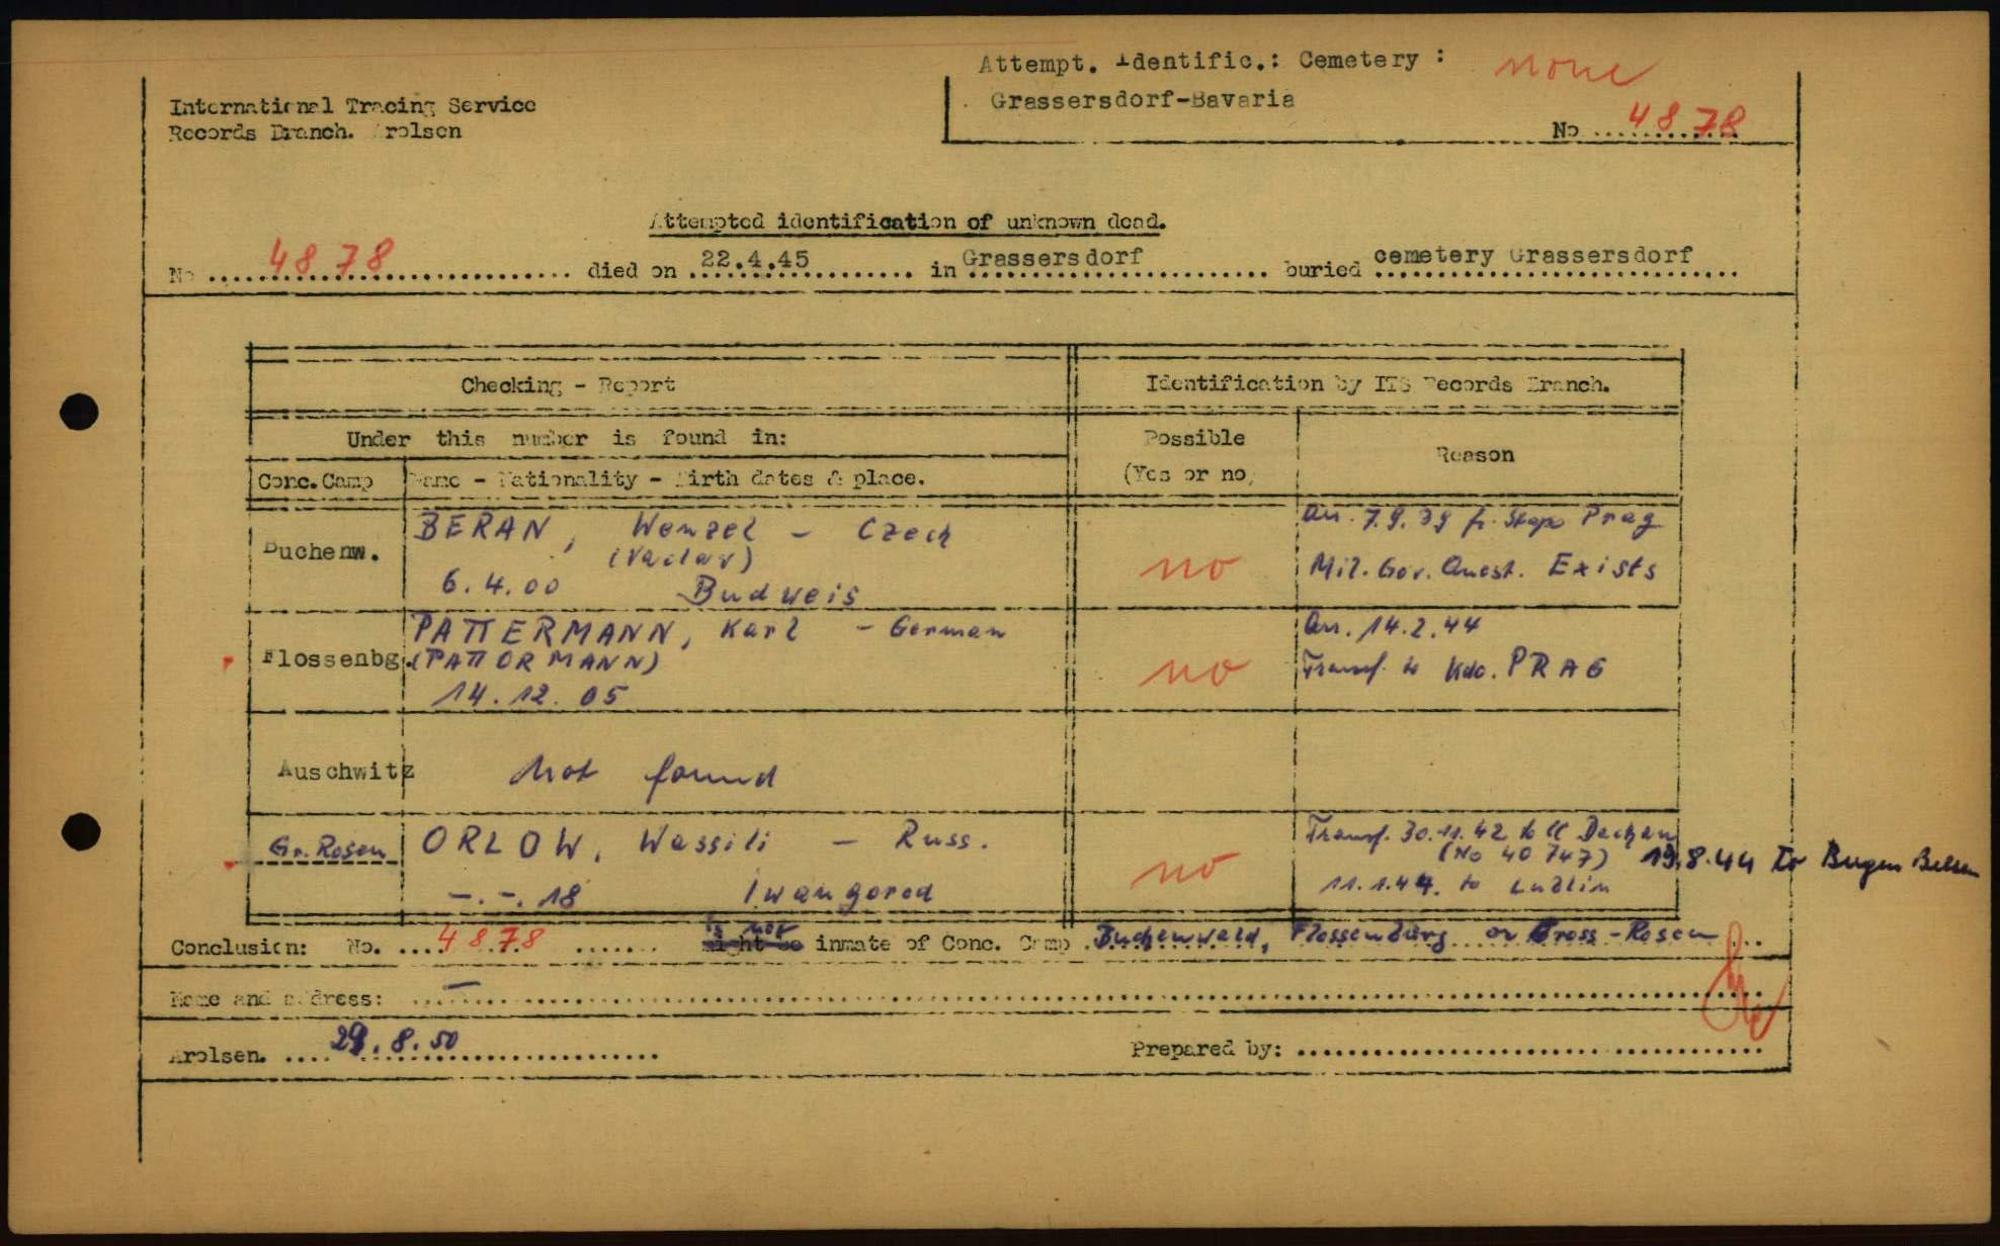 Attempt. Identific.: Cemetery : none
Grassersdorf-Bavaria
No ........... 4878
International Tracing Service
Records Branch. Arolsen
Attempted identification of unknown dead.
No ....4878.... died on ....22.4.45.... in Grassersdorf.... buried cemetery Grassersdorf
Checking - Report
Identification by ITS Records Branch.
Under this number is found in:
Possible
(Yes or no)
Reason
Conc. Camp
Name - Nationality - Birth dates & place.
Buchenw.
BERAN, Wenzel - Czech
(Vaclav)
6.4.00 Budweis
no
Arr. 7.9.39 fr. Stapo Prag
Mil. Gov. Quest. Exists
Flossenbg.
PATTERMANN, Karl - German
(PATTORMANN)
14.12.05
no
Arr. 14.2.44
Transf. to Kdo. PRAG
Auschwitz
Not found
Gr. Rosen
ORLOW, Wassili - Russ.
-.-.18 Iwangorod
no
Transf. 30.11.42 to CC Dachau
(No 40747) 19.8.44 to Bergen Belsen
11.1.44. to Lublin
Conclusion: No. ...4878 ...... is not inmate of Conc. Camp Buchenwald, Flossenbürg or Gross-Rosen
Name and address: —
Arolsen. .... 29.8.50
Prepared by: ........